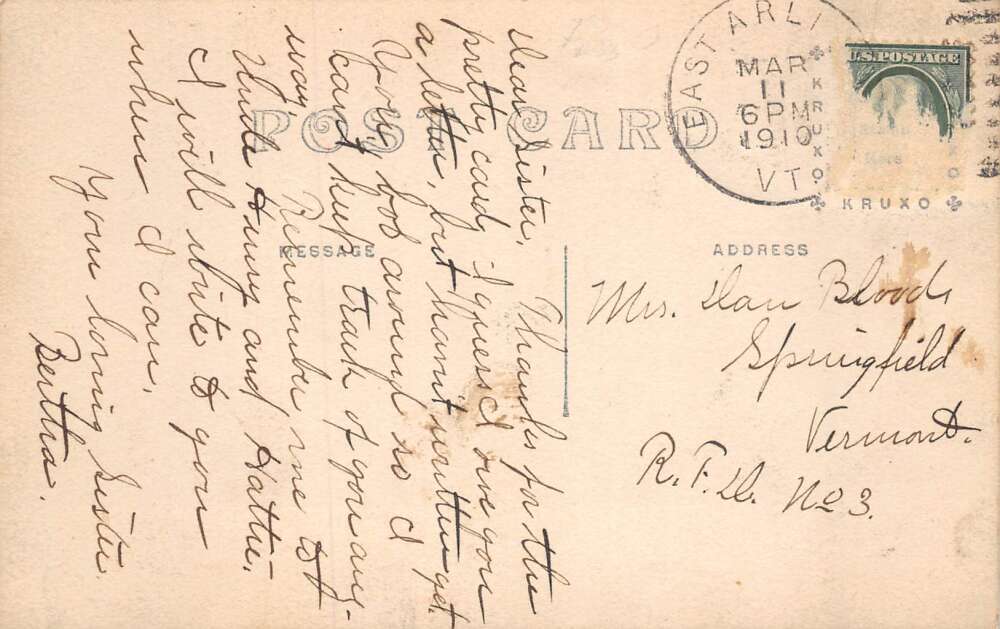 POST CARD
EAST ARLI
MAR
11
6 PM
1910
VT
U.S. POSTAGE
KRUXO
KRUXO
MESSAGE
ADDRESS
Dear Sister, Thanks for the
pretty card. I guess I owe you
a letter, but havnt written yet.
You fool around so I
cant keep track of you any-
way
Remember me to
Uncle Henry and Hattie.
I will write to you
when I can.
Your loving Sister
Bertha.
Mrs. Dan Blood,
Springfield
Vermont.
R.F.D. No 3.